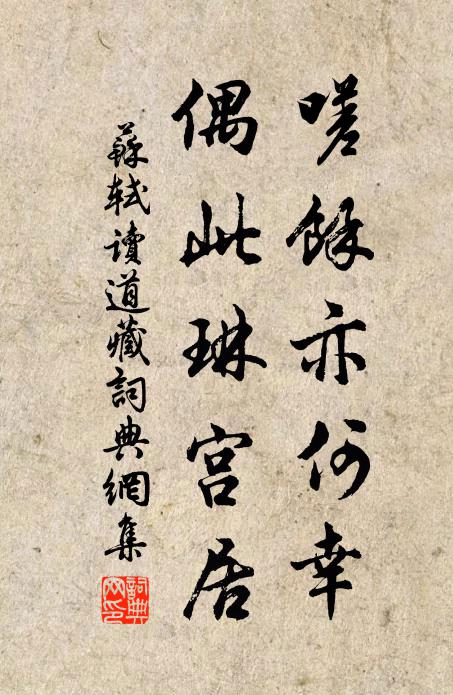 嗟餘亦何幸
偶此琳宮居
蘇軾讀道藏詞典網集
詞典網印